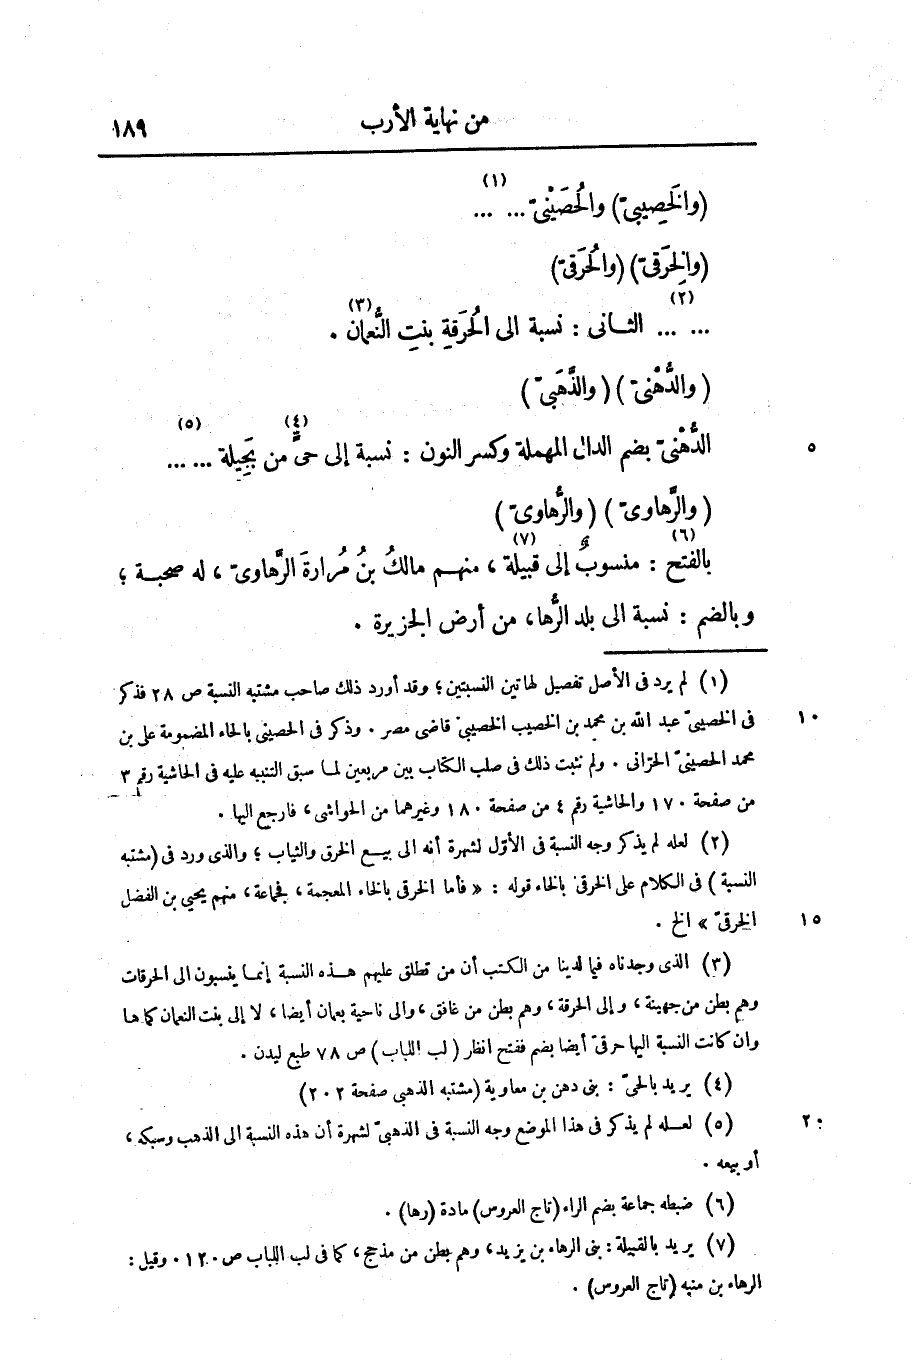 ١٨٩ من نهاية الأرب
(والخَصِيبىّ) والحُصَيْنىّ (١) ... ...
(والِخرَقىّ) (والحُرَقىّ)
... ... (٢) الثانى : نسبة الى الحُرَقةِ بنتِ النُّعمان (٣) .
(والدُّهْنىّ) (والذَّهَبىّ)
٥ الدُّهْنىّ بضم الدال المهملة وكسر النون : نسبة إلى حىٍّ (٤) من بَجِيلة (٥) ... ...
(والرَّهاوىّ) (والرُّهاوىّ)
بالفتح (٦) : منسوبٌ إلى قبيلة (٧) ، منهم مالكُ بنُ مُرارةَ الرَّهاوىّ ، له صحبة ؛
وبالضم : نسبة الى بلد الرُّها، من أرض الجزيرة .
(١) لم يرد فى الأصل تفصيل لهاتين النسبتين ؛ وقد أورد ذلك صاحب مشتبه النسبة ص ٢٨ فذكر
١٠ فى الخصيبىّ عبد الله بن محمد بن الخصيب الخصيبىّ قاضى مصر . وذكر فى الحصينى بالحاء المضمومة على بن
محمد الحصينىّ الحرّانى . ولم نثبت ذلك فى صلب الكتاب بين مربعين لما سبق التنبيه عليه فى الحاشية رقم ٣
من صفحة ١٧٠ والحاشية رقم ٤ من صفحة ١٨٠ وغيرهما من الحواشى ، فارجع اليها .
(٢) لعله لم يذكر وجه النسبة فى الأوّل لشهرة أنه الى بيع الخرق والثياب ؛ والذى ورد فى (مشتبه
النسبة) فى الكلام على الخرقىّ بالخاء قوله : « فأما الخرقى بالخاء المعجمة ، فجماعة ، منهم يحيى بن الفضل
١٥ الخرقىّ » الخ .
(٣) الذى وجدناه فيما لدينا من الكتب أن من تطلق عليهم هذه النسبة إنما ينسبون الى الحرقات
وهم بطن من جهينة ، و إلى الحرقة ، وهم بطن من غافق ، والى ناحية بعمان أيضا ، لا إلى بنت النعمان كما ها
وان كانت النسبة اليها حرقىّ أيضا بضم ففتح انظر (لب اللباب) ص ٧٨ طبع ليدن .
(٤) يريد بالحىّ : بنى دهن بن معاوية (مشتبه الذهبى صفحة ٢٠٢)
٢٠ (٥) لعله لم يذكر فى هذا الموضع وجه النسبة فى الذهبىّ لشهرة أن هذه النسبة الى الذهب وسبكه ،
أو بيعه .
(٦) ضبطه جماعة بضم الراء (تاج العروس) مادة (رها) .
(٧) يريد بالقبيلة : بنى الرهاء بن يزيد، وهم بطن من مذحج ، كما فى لب اللباب ص ١٢٠ . وقيل :
الرهاء بن منبه (تاج العروس) .